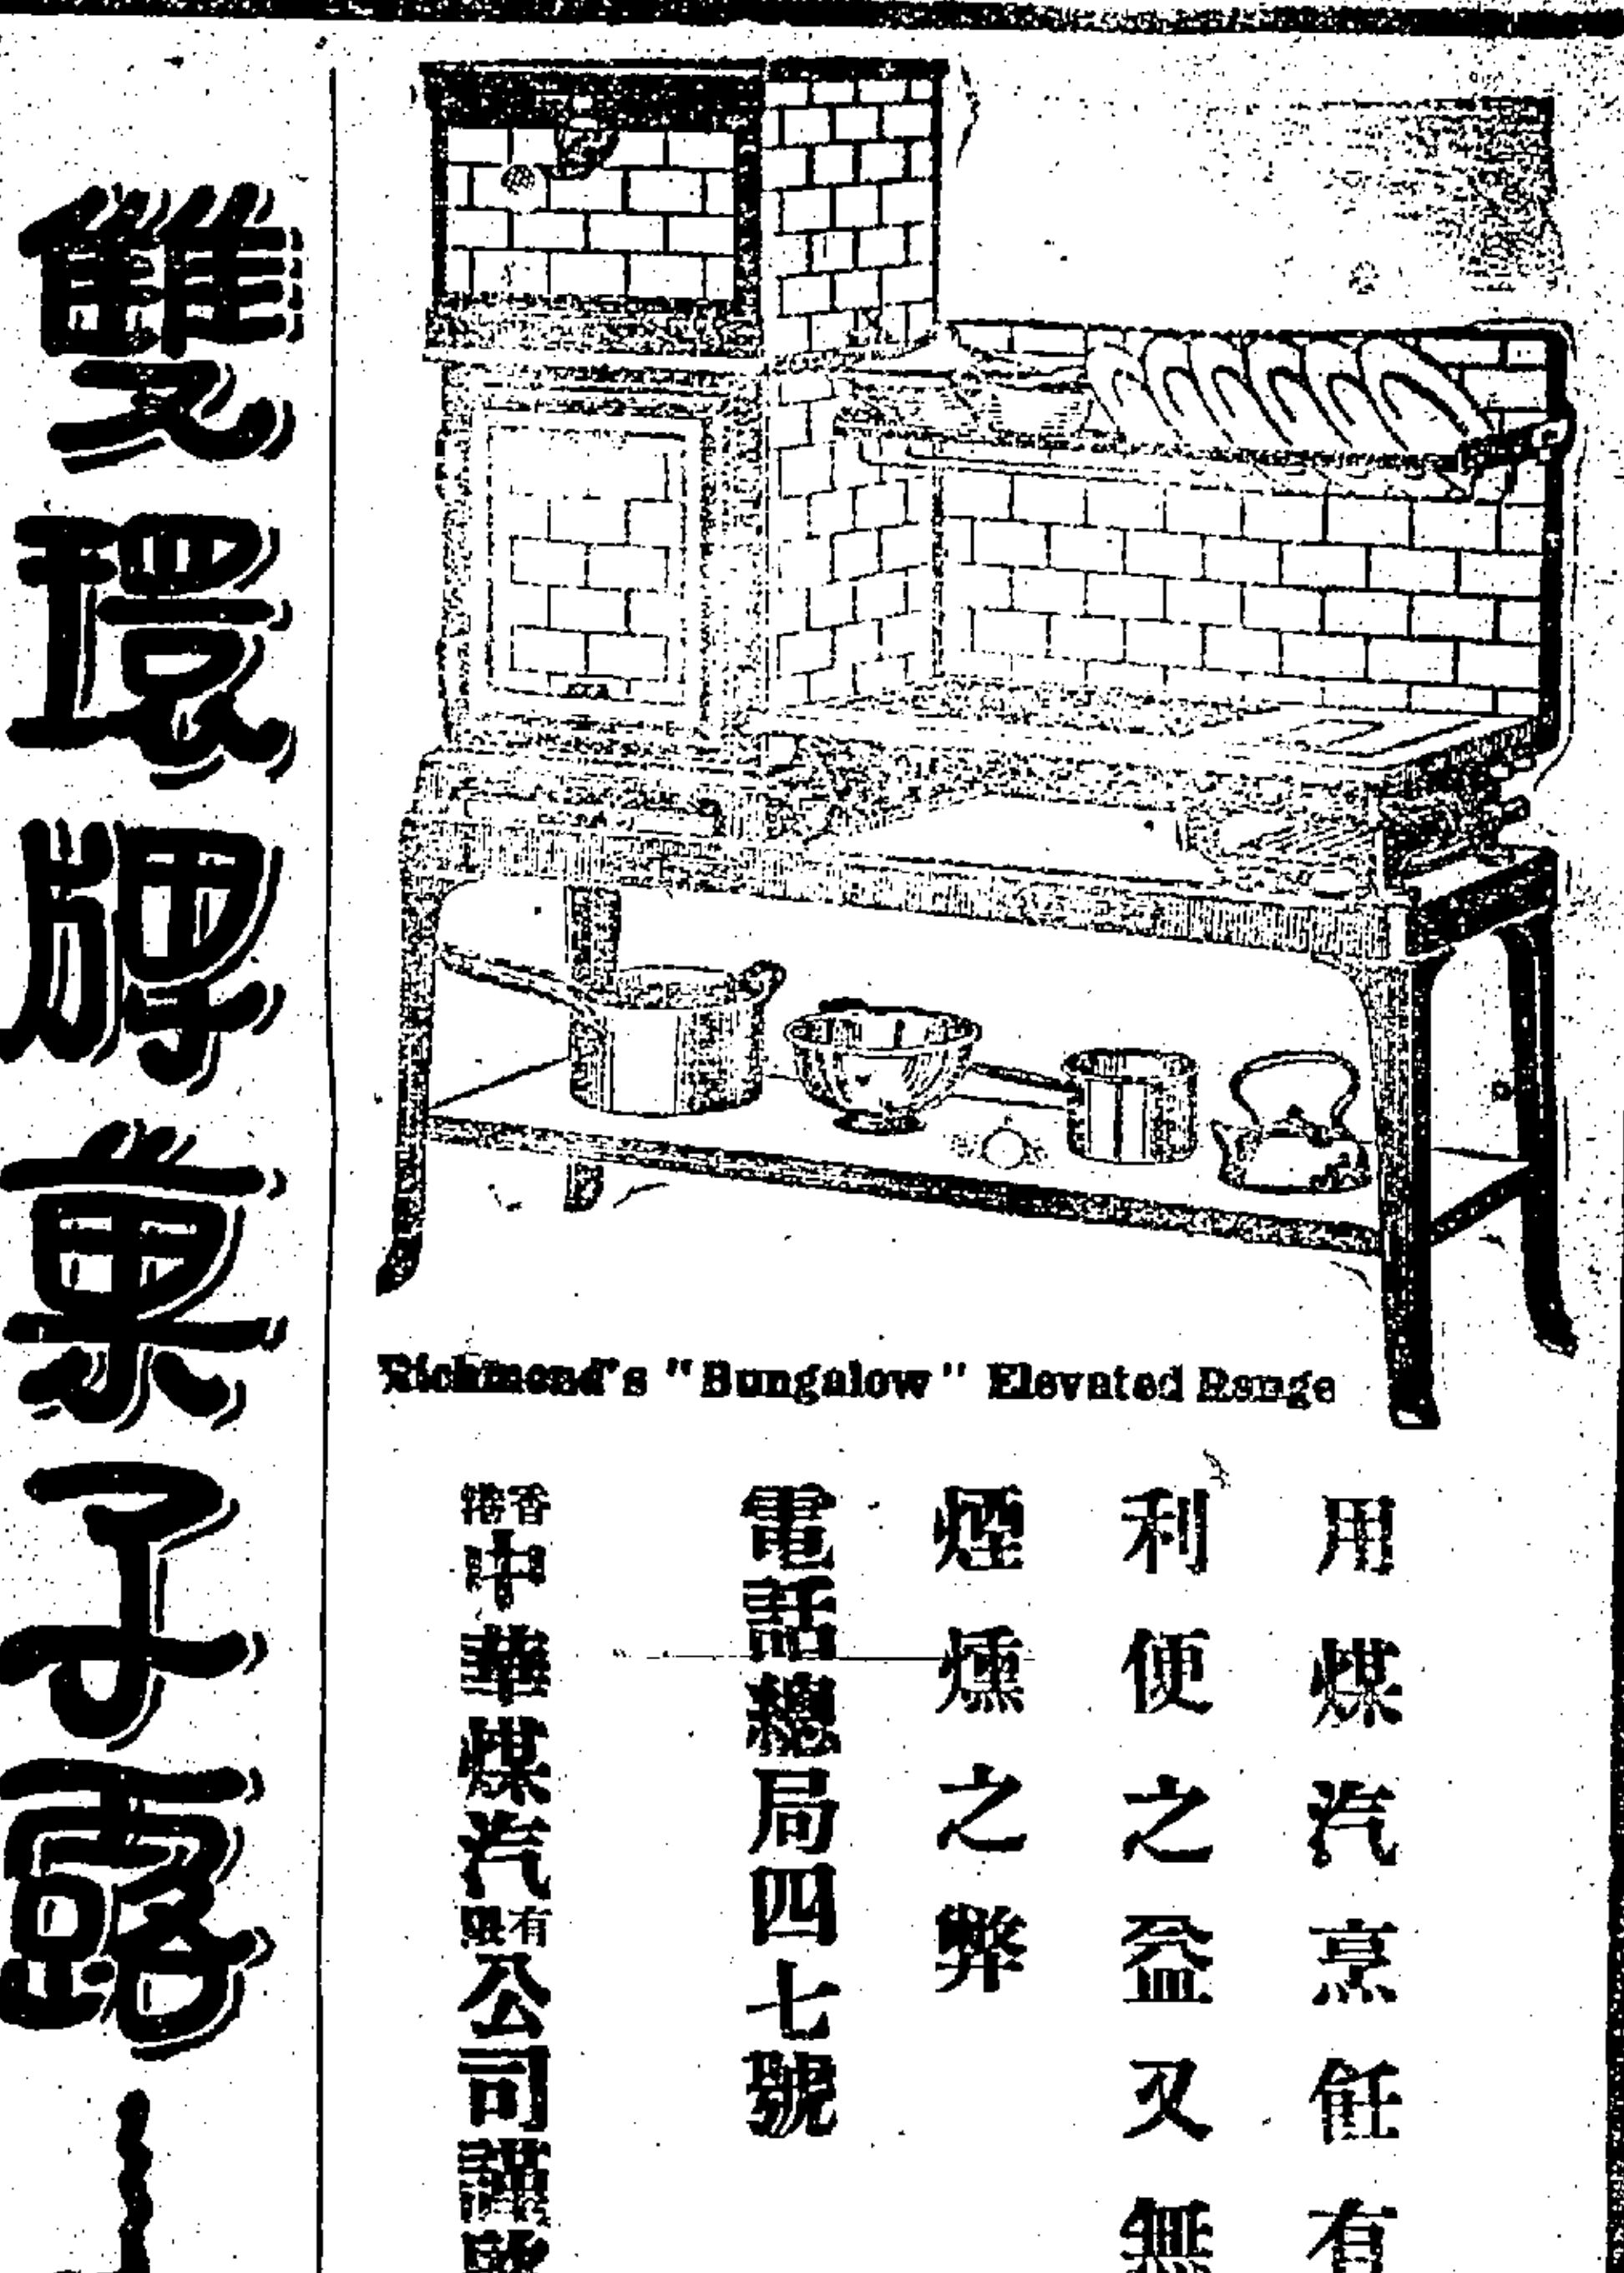 Richmond's "Bungalow" Elevated Range
用煤汽烹飪有
利便之益又無
煙燻之弊
電話總局四七號
香港中華煤汽有限公司謹啟
雙環牌菓子露